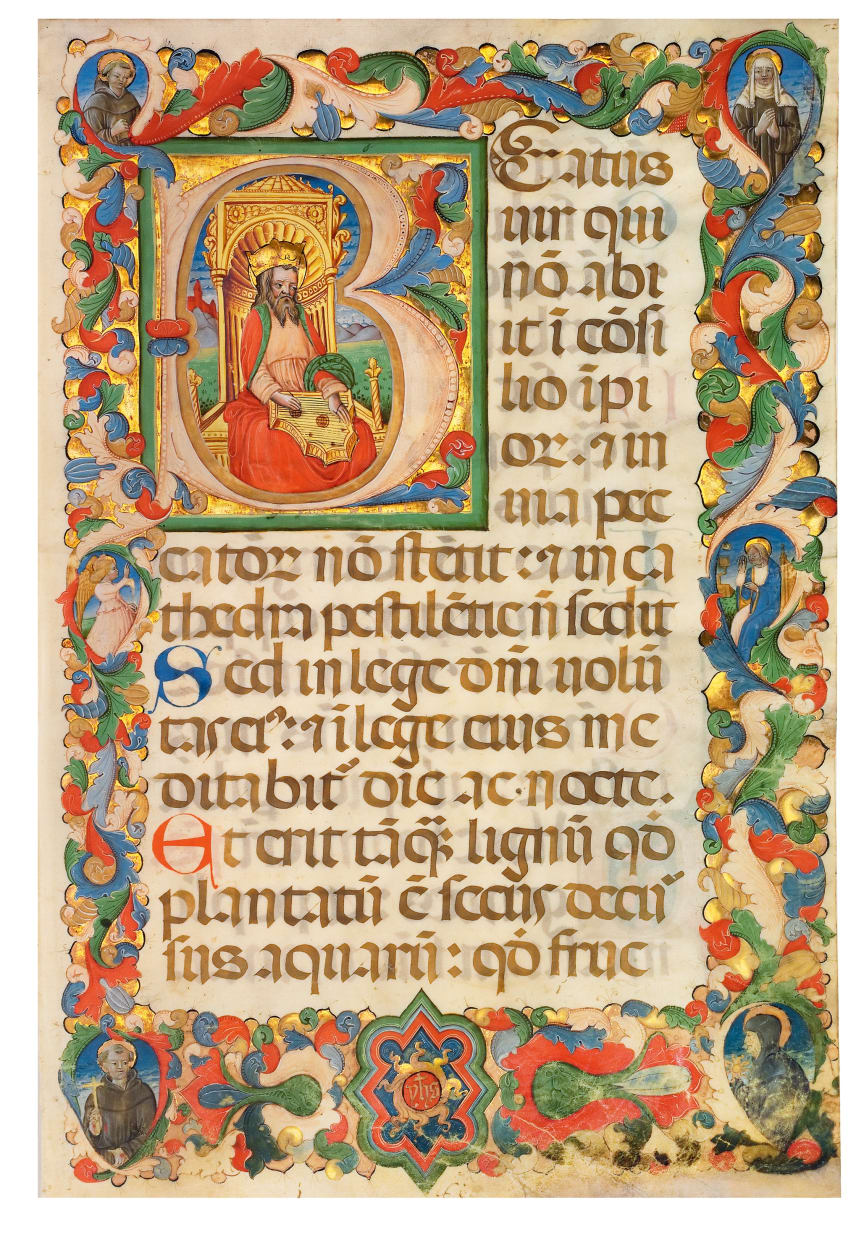 B Eatus
uir qui
nō abi
it i cōsi
lio ipi
oꝝ. ⁊ in
uia pec
catoꝝ nō stetit: ⁊ in ca
thedra pestilētie n̄ sedit
Sed in lege dn̄i uolū
tas eiꝰ: ⁊ i lege eius me
ditabit᷑ die ac nocte.
Et erit tāq̄ꝫ lignū qđ
plantatū ē secus decur
sus aquarū: qđ fruc
yhs